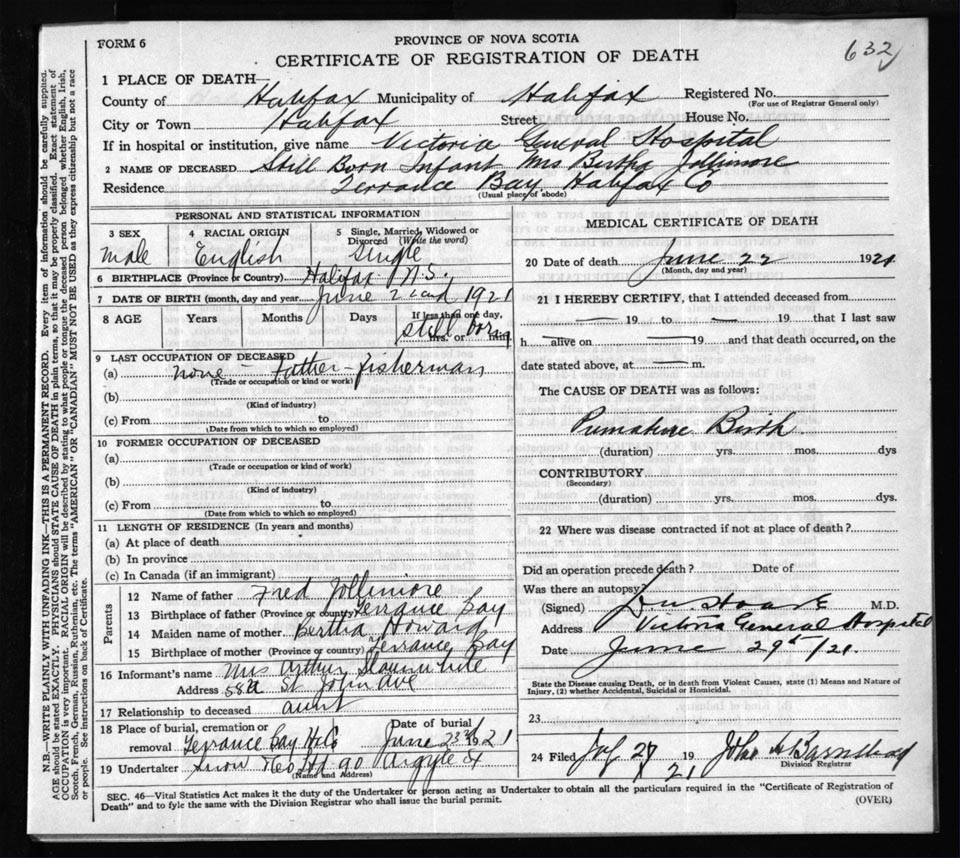 FORM 6
PROVINCE OF NOVA SCOTIA
632
CERTIFICATE OF REGISTRATION OF DEATH
1 PLACE OF DEATH—
County of Halifax Municipality of Halifax Registered No.
(For use of Registrar General only)
City or Town Halifax Street House No.
If in hospital or institution, give name Victoria General Hospital
2 NAME OF DECEASED Still Born Infant Mrs Bertha Jollimore
Residence Terrance Bay Halifax Co
(Usual place of abode)
PERSONAL AND STATISTICAL INFORMATION
3 SEX 4 RACIAL ORIGIN 5 Single, Married, Widowed or Divorced (Write the word)
Male English Single
6 BIRTHPLACE (Province or Country) Halifax N.S.
7 DATE OF BIRTH (month, day and year) June 22nd 1921
8 AGE Years Months Days If less than one day, hrs. or min.
still born
9 LAST OCCUPATION OF DECEASED
(a) none - Father - fisherman
(Trade or occupation or kind of work)
(b)
(Kind of industry)
(c) From to
(Date from which to which so employed)
10 FORMER OCCUPATION OF DECEASED
(a)
(Trade or occupation or kind of work)
(b)
(Kind of industry)
(c) From to
(Date from which to which so employed)
11 LENGTH OF RESIDENCE (In years and months)
(a) At place of death
(b) In province
(c) In Canada (if an immigrant)
Parents
12 Name of father Fred Jollimore
13 Birthplace of father (Province or country) Terrance Bay
14 Maiden name of mother Bertha Howard
15 Birthplace of mother (Province or country) Terrance Bay
16 Informant's name Mrs Arthur Slaunwhite
Address 58a St John Ave
17 Relationship to deceased aunt
18 Place of burial, cremation or removal Terrance Bay Hx Co Date of burial June 23rd 1921
19 Undertaker Snow & Co Ltd 90 Argyle St
(Name and Address)
MEDICAL CERTIFICATE OF DEATH
20 Date of death June 22 1921
(Month, day and year)
21 I HEREBY CERTIFY, that I attended deceased from
— 19 to — 19 that I last saw
h — alive on — 19 and that death occurred, on the
date stated above, at — m.
The CAUSE OF DEATH was as follows:
Premature Birth
(duration) yrs. mos. dys
CONTRIBUTORY
(Secondary)
(duration) yrs. mos. dys.
22 Where was disease contracted if not at place of death?
Did an operation precede death? Date of
Was there an autopsy?
(Signed) M.D.
Address Victoria General Hospital
Date June 29th/21.
State the Disease causing Death, or in death from Violent Causes, state (1) Means and Nature of
Injury, (2) whether Accidental, Suicidal or Homicidal.
23
24 Filed 27 21 Barnstead
Division Registrar
SEC. 46—Vital Statistics Act makes it the duty of the Undertaker or person acting as Undertaker to obtain all the particulars required in the "Certificate of Registration of
Death" and to fyle the same with the Division Registrar who shall issue the burial permit.
(OVER)
N.B.—WRITE PLAINLY WITH UNFADING INK—THIS IS A PERMANENT RECORD. Every item of information should be carefully supplied.
AGE should be stated EXACTLY. PHYSICIANS should STATE CAUSE OF DEATH in plain terms, so that it may be properly classified. Exact statement of
OCCUPATION is very important. RACIAL ORIGIN will be described by stating to what people or tongue the deceased person belonged whether English, Irish,
Scotch, French, German, Russian, Ruthenian, etc. The terms "AMERICAN" OR "CANADIAN" MUST NOT BE USED as they express citizenship but not a race
or people. See instructions on back of Certificate.